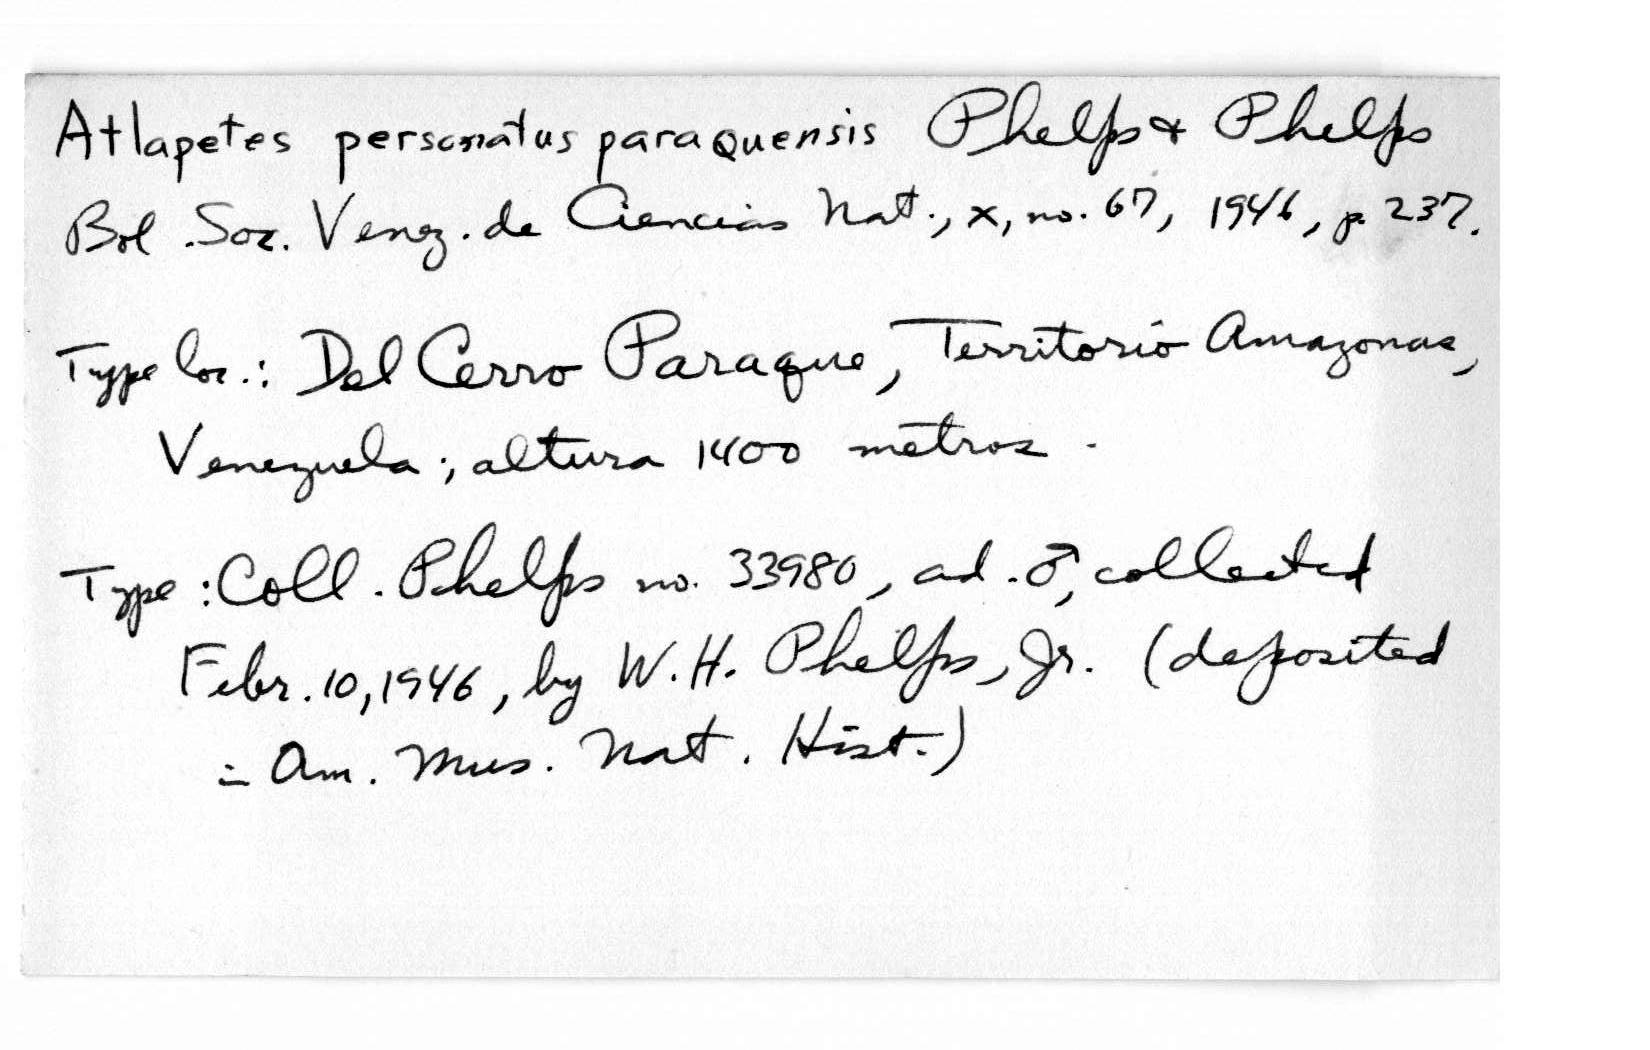 Atlapetes personatus paraquensis Phelps & Phelps
Bol. Soc. Venez. de Ciencias Nat., x, no. 67, 1946, p. 237.
Type loc.: Del Cerro Paraque, Territorio Amazonas,
Venezuela; altura 1400 metros.
Type: Coll. Phelps no. 33980, ad. ♂, collected
Febr. 10, 1946, by W. H. Phelps, Jr. (deposited
in Am. Mus. Nat. Hist.)